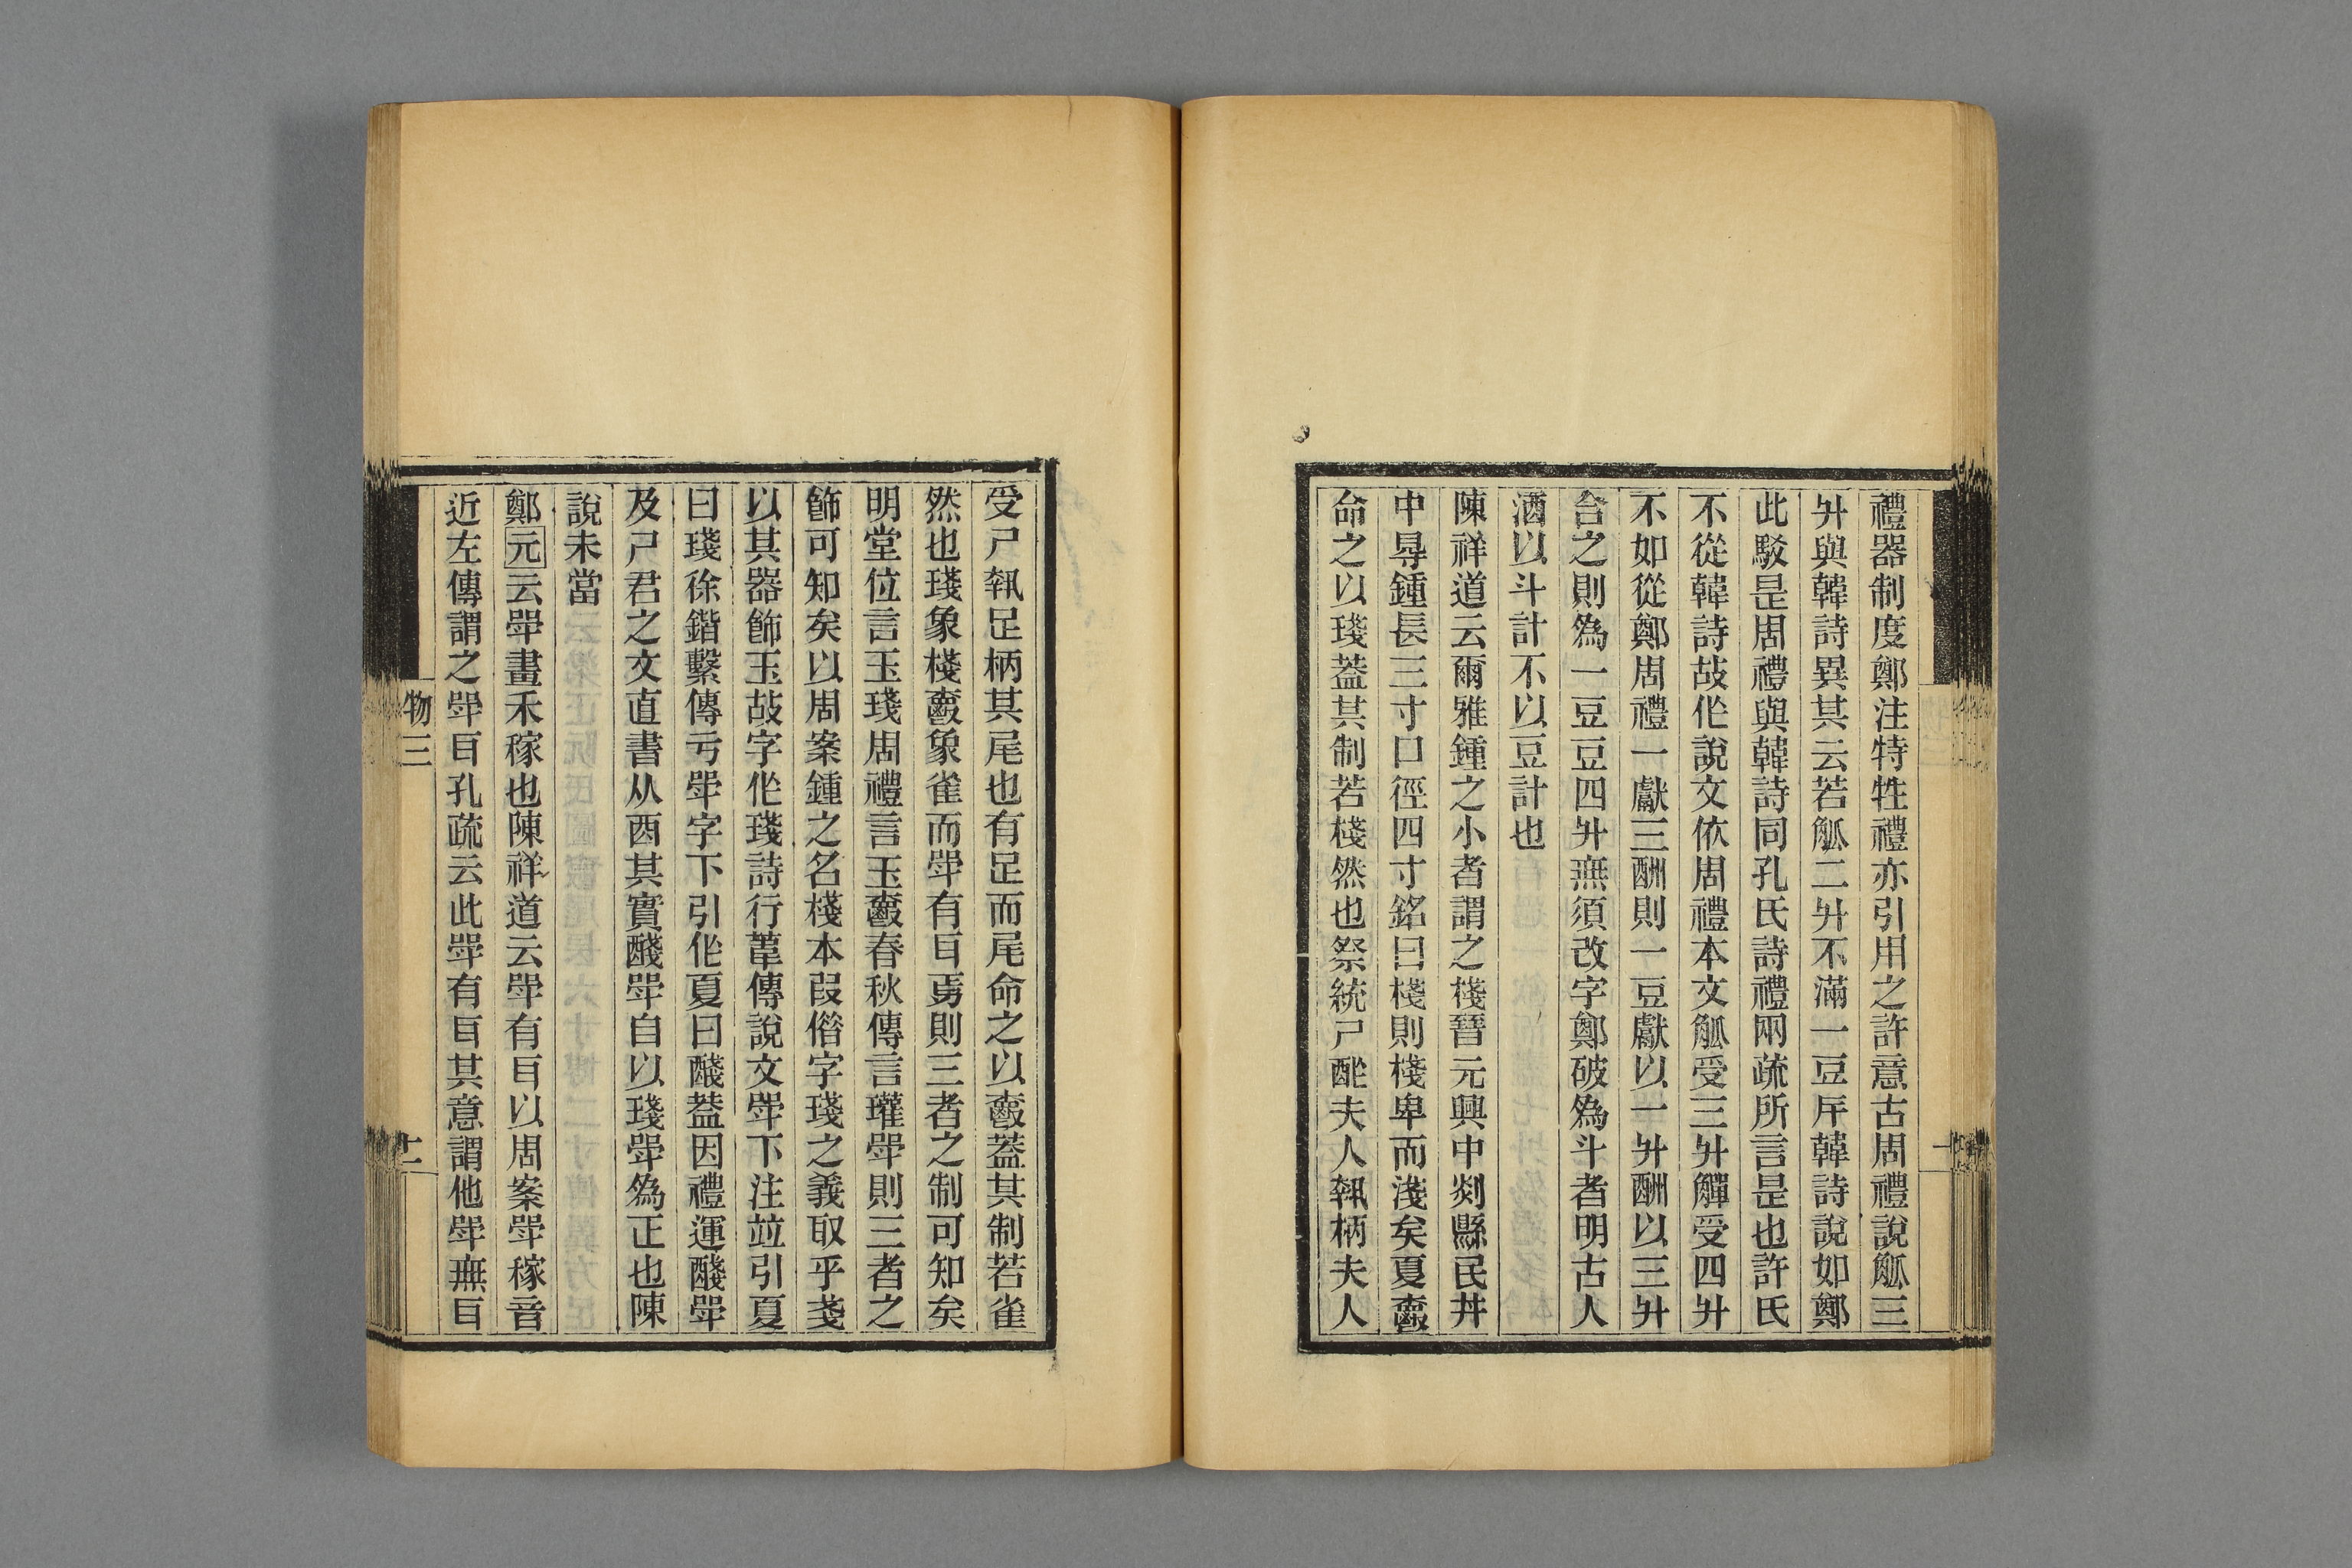 禮器制度鄭注特牲禮亦引用之許意古周禮說觚三
升與韓詩異其云若觚二升不滿一豆斥韓詩說如鄭
此駁是周禮與韓詩同孔氏詩禮兩疏所言是也許氏
不從韓詩故作說文依周禮本文觚受三升觶受四升
不如從鄭周禮一獻三酬則一豆獻以一升酬以三升
合之則為一豆豆四升無須改字鄭破為斗者明古人
酒以斗計不以豆計也
陳祥道云爾雅鍾之小者謂之棧晉元興中剡縣民井
中㝵鍾長三寸口徑四寸銘曰棧則棧卑而淺矣夏爵
命之以琖蓋其制若棧然也祭統尸酢夫人執柄夫人
受尸執足柄其尾也有足而尾命之以爵蓋其制若雀
然也琖象棧爵象雀而斝有耳焉則三者之制可知矣
明堂位言玉琖周禮言玉爵春秋傳言瓘斝則三者之
飾可知矣以周案鍾之名棧本叚借字琖之義取乎戔
以其器飾玉故字作琖詩行葦傳說文斝下注竝引夏
曰琖徐鍇繫傳亏斝字下引作夏曰醆蓋因禮運醆斝
及尸君之文直書从酉其實醆斝自以琖斝為正也陳
說未當
鄭元云斝畫禾稼也陳祥道云斝有耳以周案斝稼音
近左傳謂之斝耳孔疏云此斝有耳其意謂他斝無耳
物三